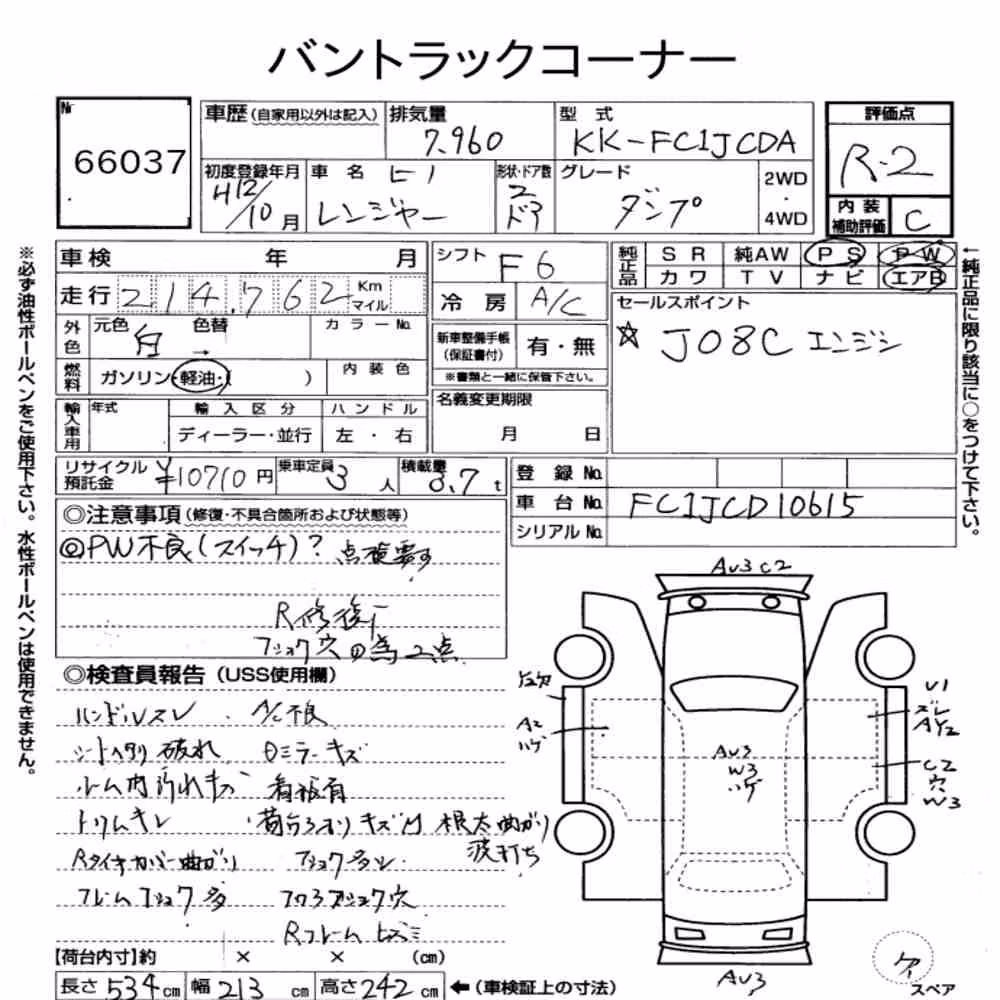 バントラックコーナー
№ 66037
車歴(自家用以外は記入) 排気量 7.960 型式 KK-FC1JCDA
初度登録年月 H12/10月 車名 ヒノ レンジャー 形状・ドア数 2 ドア グレード ダンプ 2WD・4WD
評価点 R-2
内装補助評価 C
車検 年 月
走行 214.762 Km マイル
シフト F6
冷房 A/C
純正品 SR 純AW PS PW
カワ TV ナビ エアB
外色 元色 白 色替 → カラーNo.
燃料 ガソリン・軽油・( ) 内装色
新車整備手帳(保証書付) 有・無
※書類と一緒に保管下さい。
セールスポイント
☆ J08C エンジン
輸入車用 年式 輸入区分 ハンドル
ディーラー・並行 左・右
名義変更期限
月 日
リサイクル預託金 ¥10710円 乗車定員 3人 積載量 3.7t
登録No.
車台No. FC1JCD10615
シリアルNo.
◎注意事項(修復・不具合箇所および状態等)
◎PW不良(スイッチ)? 点検要す
R修復
フショク穴の為2点
◎検査員報告(USS使用欄)
ハンドルスレ A/C不良
シートヘタリ破れ ミラーキズ
ルーム内汚れキズ 看板有
トリムキレ ・荷台 キズ凹 根太曲がり
波打ち
Rタイヤカバー曲がり フショク多シ
フレームフショク多 フロアフショク穴
Rフレームヒズミ
【荷台内寸】約 × × (cm)
長さ 534cm 幅 213cm 高さ 242cm ←(車検証上の寸法)
AU3 C2
A2
ハゲ
AU3
W3
ハゲ
U1
ズレ
AY2
C2
穴
W3
AU3
スペア
※必ず油性ボールペンをご使用下さい。水性ボールペンは使用できません。
←純正品に限り該当に○をつけて下さい。